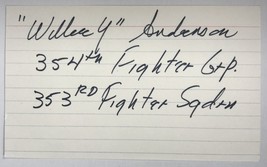 "Willie Y" Anderson
354th Fighter Grp.
353RD Fighter Sqdrn